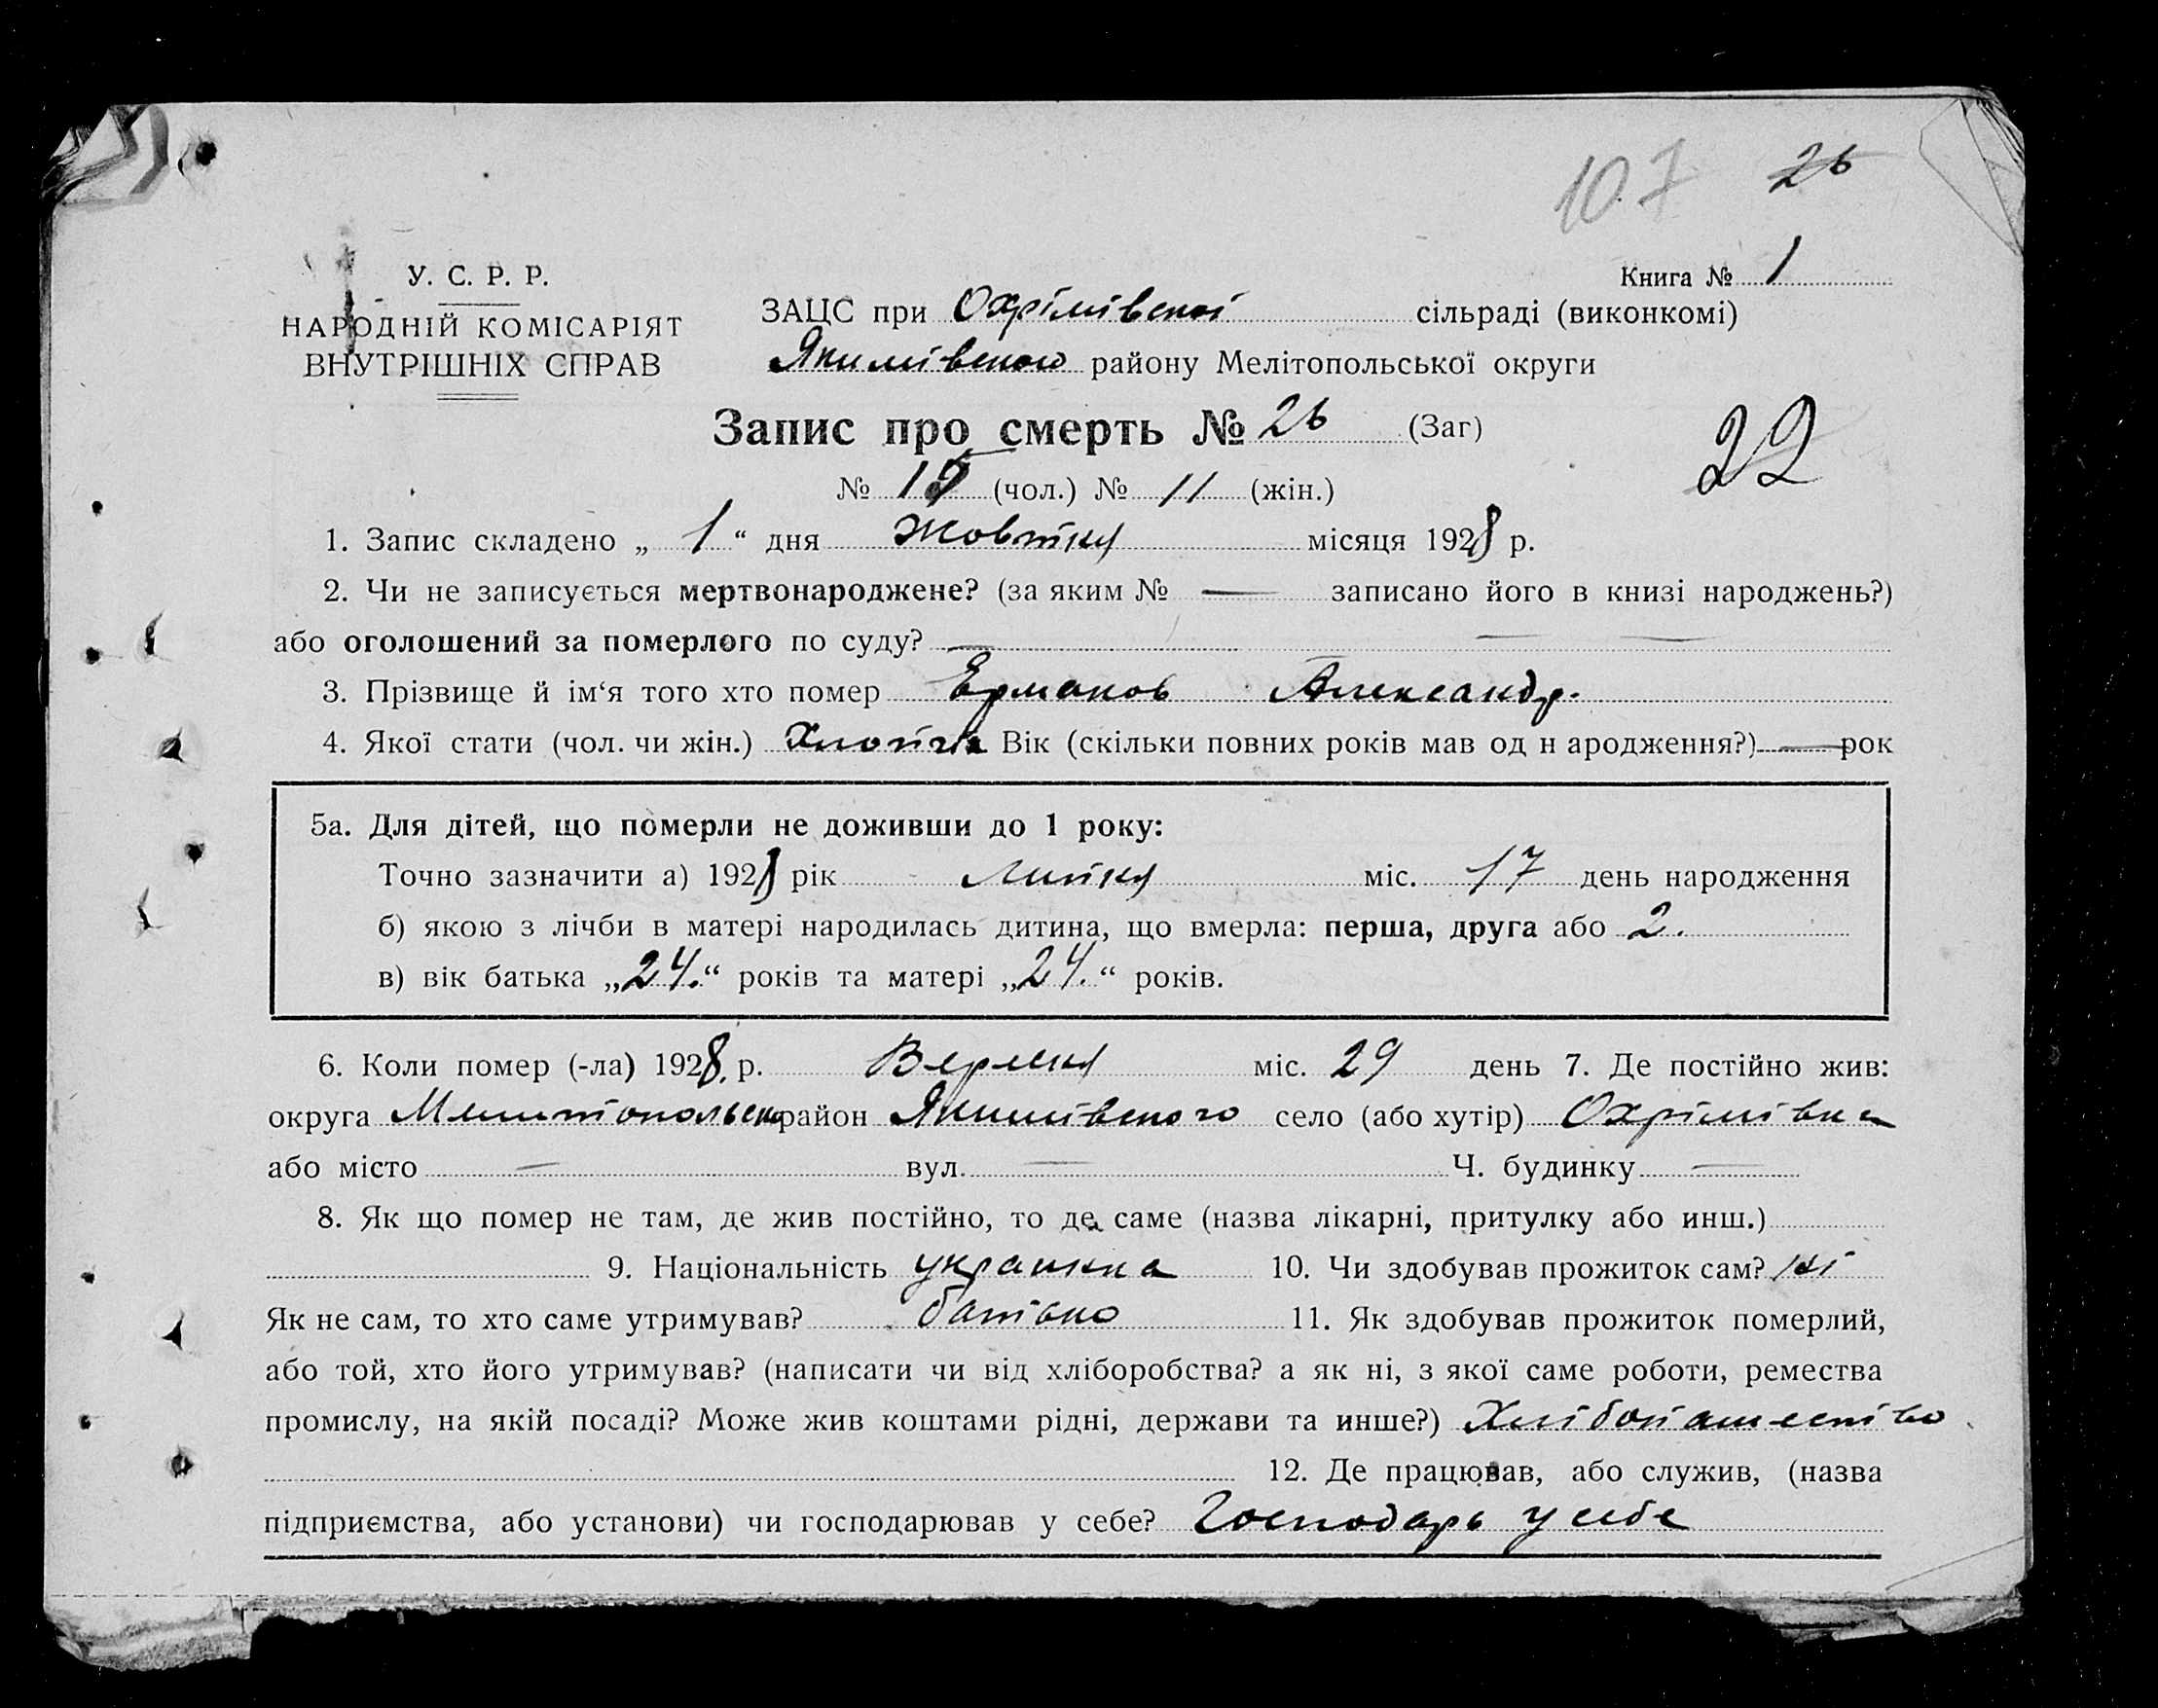 107 26
У. С. Р. Р.
НАРОДНІЙ КОМІСАРІЯТ
ВНУТРІШНІХ СПРАВ
Книга № 1
ЗАЦС при Охрімівської сільраді (виконкомі)
Якимівського району Мелітопольської округи
Запис про смерть № 26 (Заг)
22
№ 15 (чол.) № 11 (жін.)
1. Запис складено „ 1 “ дня Жовтня місяця 1928 р.
2. Чи не записується мертвонароджене? (за яким № — записано його в книзі народжень?)
або оголошений за померлого по суду? —
3. Прізвище й ім‘я того хто помер Ермаков Александр.
4. Якої стати (чол. чи жін.) Хлопчик Вік (скільки повних років мав од н ародження?) — рок
5а. Для дітей, що померли не доживши до 1 року:
Точно зазначити а) 1928 рік Липня міс. 17 день народження
б) якою з лічби в матері народилась дитина, що вмерла: перша, друга або 2.
в) вік батька „24.“ років та матері „24.“ років.
6. Коли помер (-ла) 1928. р. Вересня міс. 29 день 7. Де постійно жив:
округа район Якимівського село (або хутір) Охрімівка
або місто — вул. — Ч. будинку —
8. Як що помер не там, де жив постійно, то де саме (назва лікарні, притулку або инш.)
9. Національність 10. Чи здобував прожиток сам? ні
Як не сам, то хто саме утримував? батько 11. Як здобував прожиток померлий,
або той, хто його утримував? (написати чи від хліборобства? а як ні, з якої саме роботи, ремества
промислу, на якій посаді? Може жив коштами рідні, держави та инше?)
12. Де працював, або служив, (назва
підприємства, або установи) чи господарював у себе? Господарь у себе